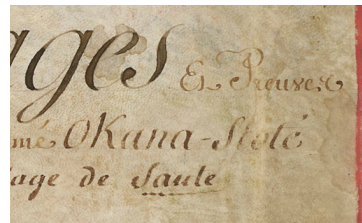 ages Et Preuves
mé Okana-Stoté
lage de Saute